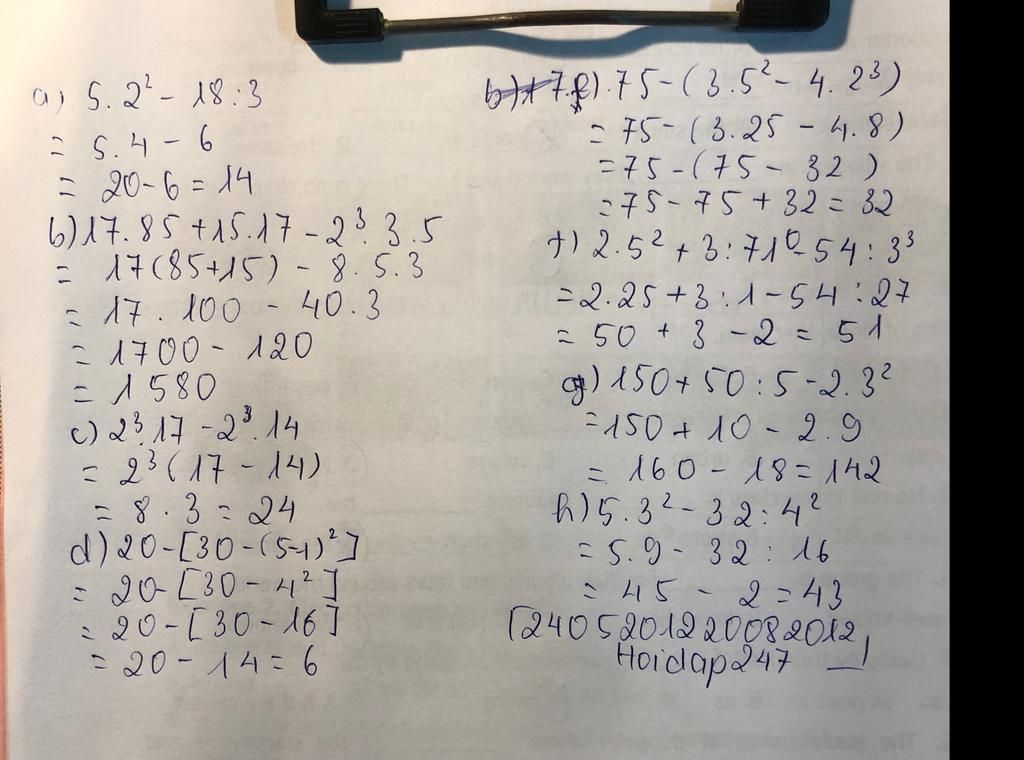 a) 5.2² - 18:3
= 5.4 - 6
= 20-6 = 14
b) 17.85 + 15.17 - 2³.3.5
= 17(85+15) - 8.5.3
= 17.100 - 40.3
= 1700 - 120
= 1580
c) 2³.17 - 2³.14
= 2³(17 - 14)
= 8.3 = 24
d) 20-[30-(5-1)²]
= 20-[30-4²]
= 20-[30-16]
= 20-14 = 6
75-(3.5²-4.2³)
= 75-(3.25 - 4.8)
= 75-(75 - 32)
= 75-75+32 = 32
f) 2.5² + 3:71⁰-54:3³
= 2.25+3:1-54:27
= 50 + 3 - 2 = 51
g) 150+50:5-2.3²
= 150+10-2.9
= 160-18=142
h) 5.3²-32:4²
= 5.9-32:16
= 45 - 2 = 43
[240520122008​2012
Hoidap247